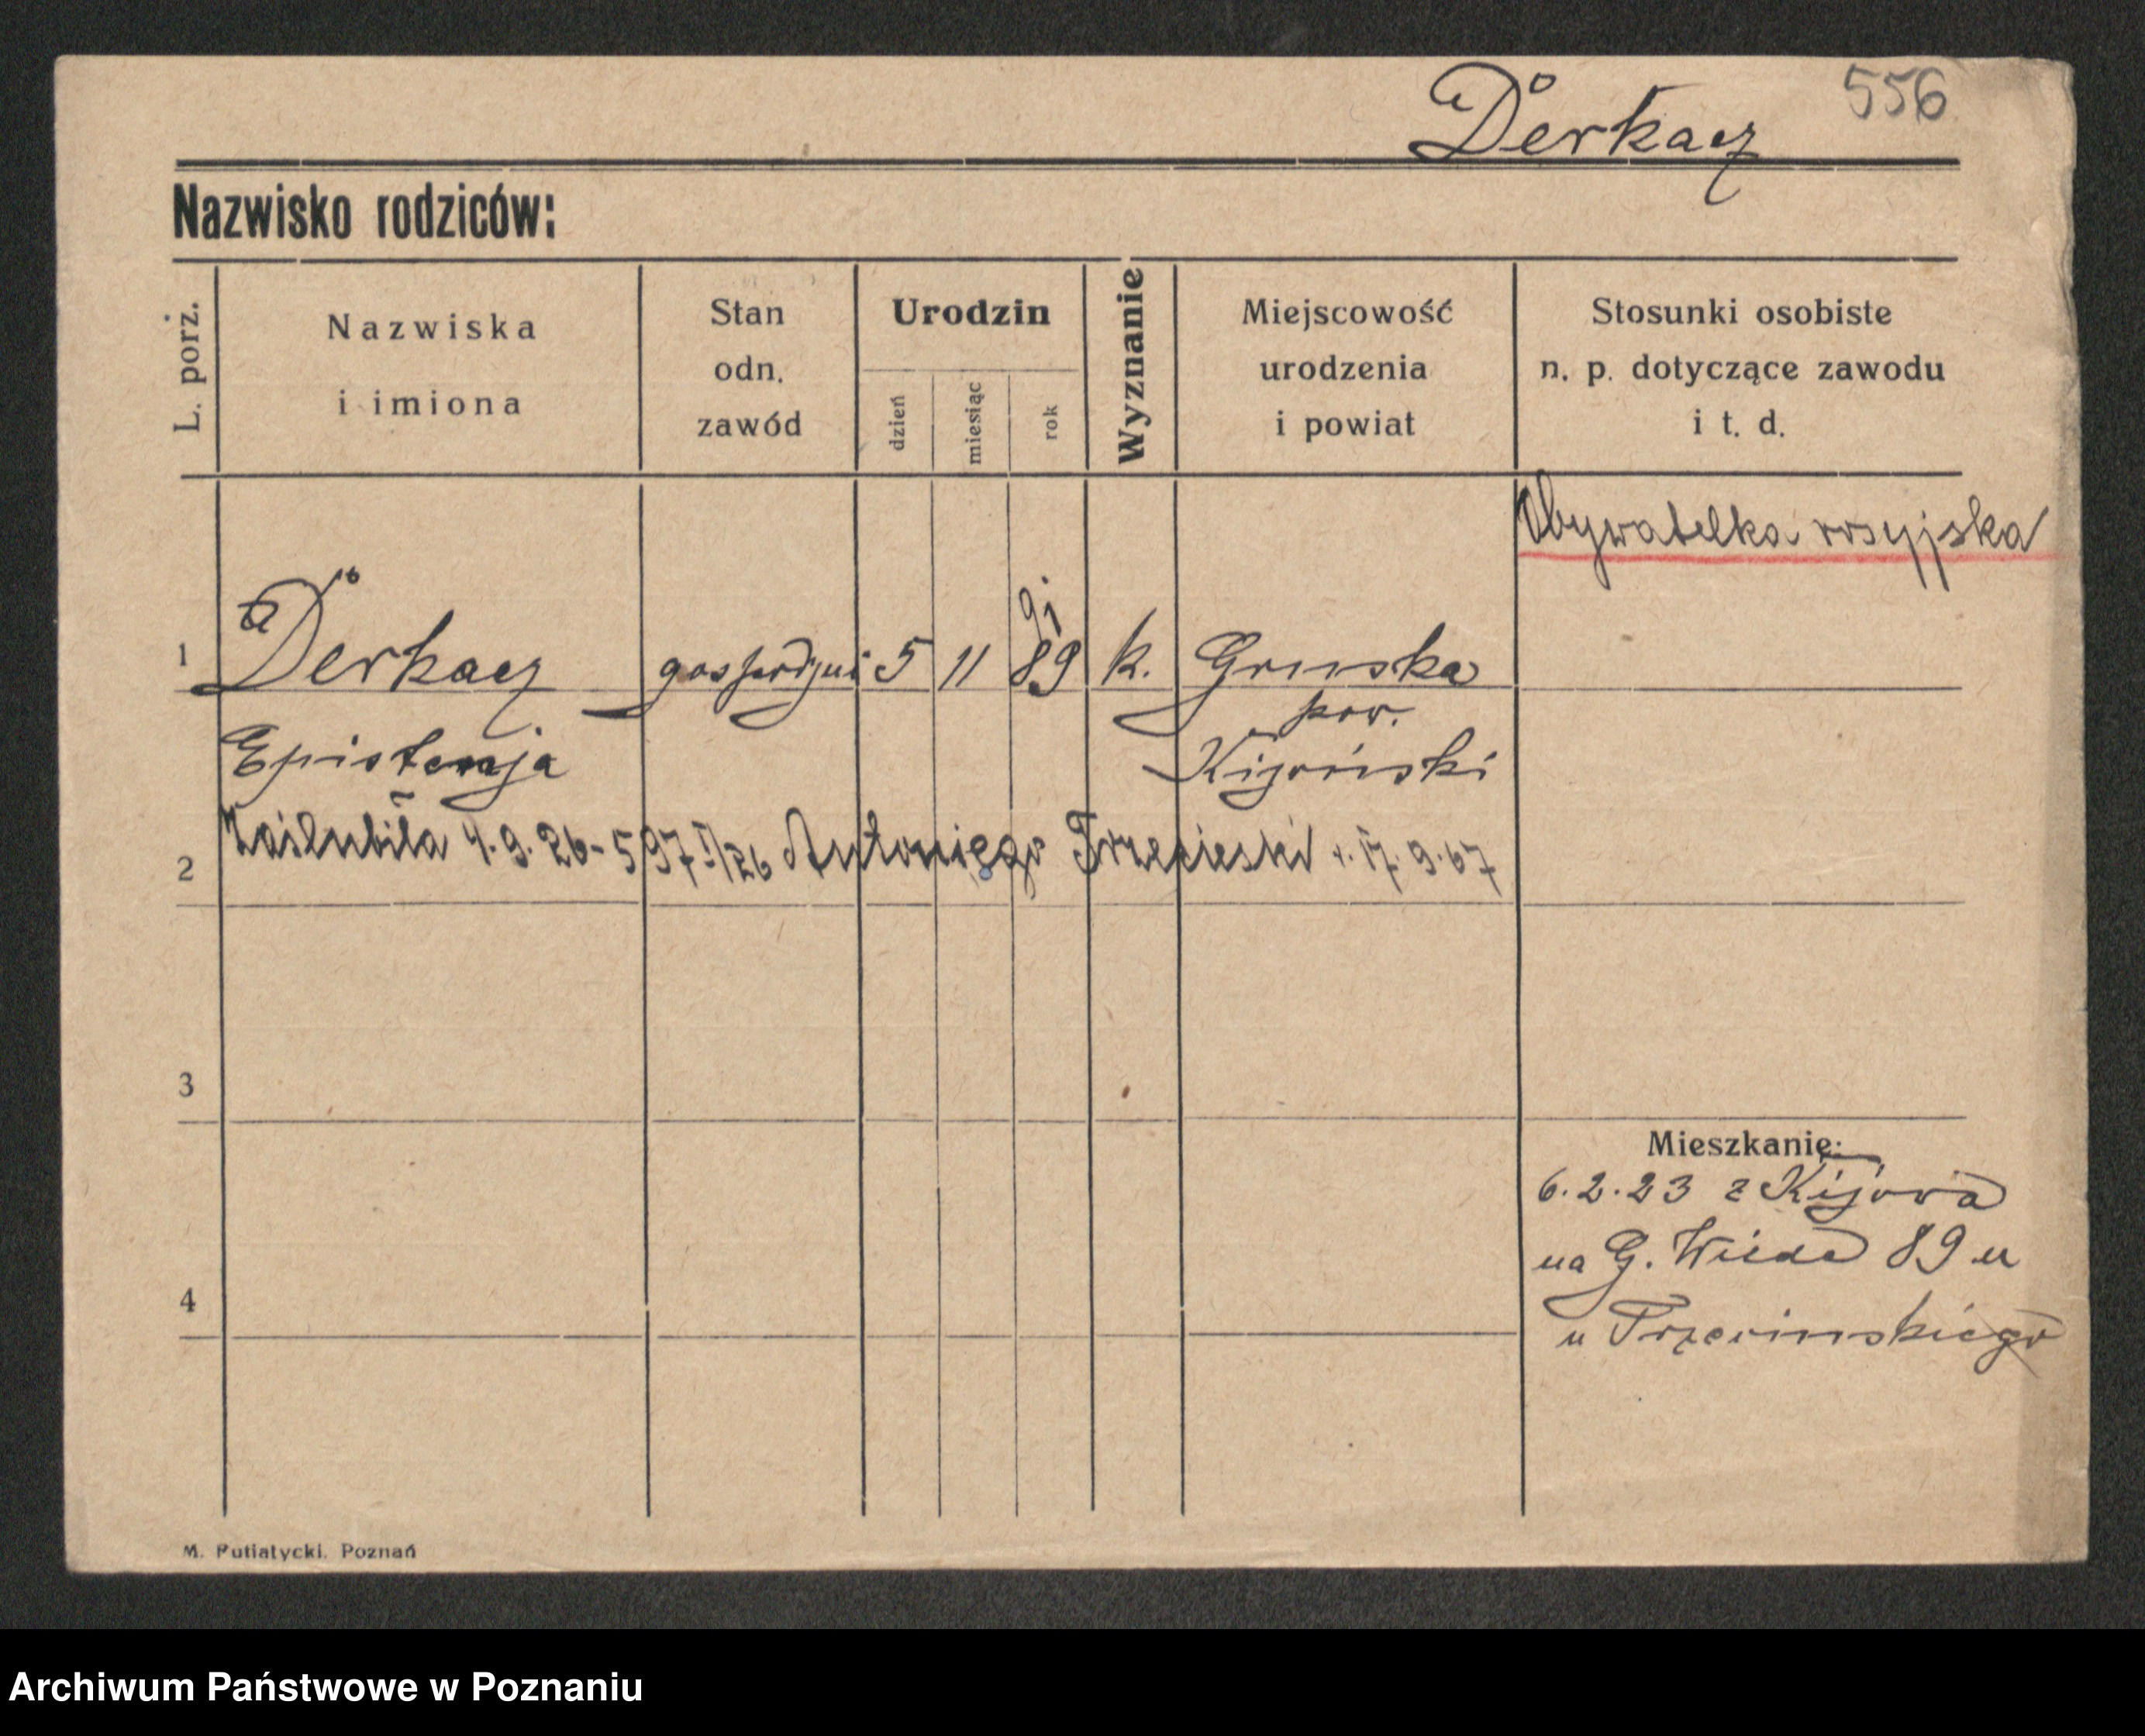 556
Derkacz
Nazwisko rodziców:
L. porz.
Nazwiska
i imiona
Stan
odn.
zawód
Urodzin
dzień
miesiąc
rok
Wyznanie
Miejscowość
urodzenia
i powiat
Stosunki osobiste
n. p. dotyczące zawodu
i t. d.
Obywatelka rosyjska
91
1 Derkacz gospodyni 5 11 89 k. Gruska
pow.
Kijowski
2 Zaślubiła 4. 9. 26 - 597 I/26 Antoniego 17. 9. 67
3
Mieszkanie:
6. 2. 23 z Kijowa
na G. Wilda 89 u
4
u
M. Putiatycki. Poznań
Archiwum Państwowe w Poznaniu